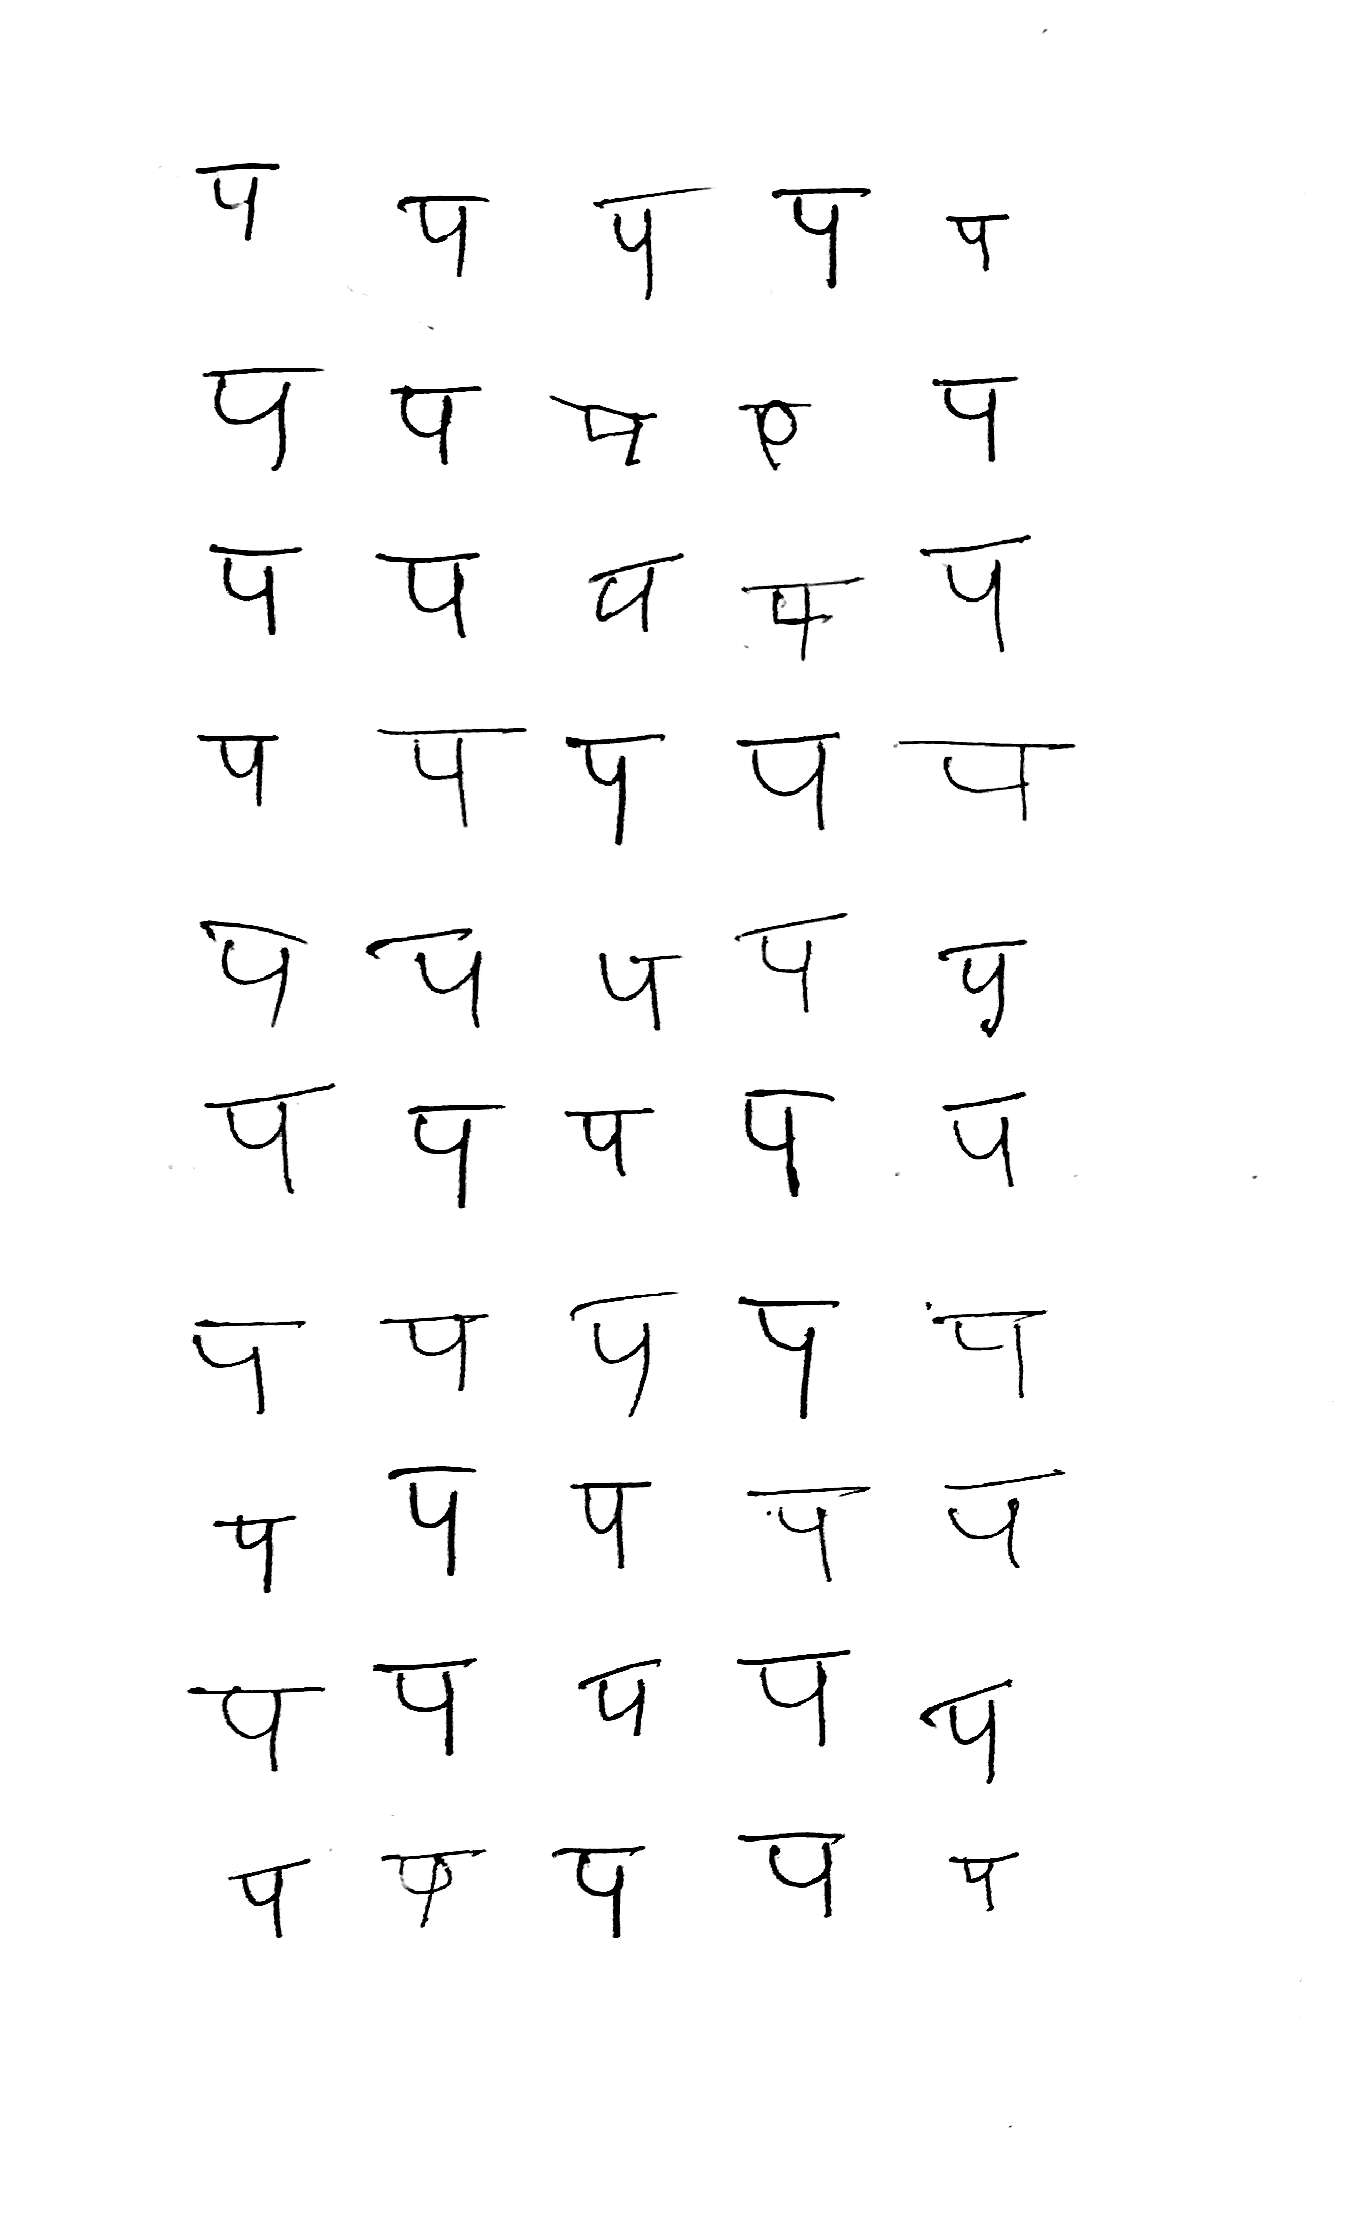 प प प प प
प प प प प
प प प प प
प प प प प
प प प प प
प प प प प
प प प प प
प प प प प
प प प प प
प प प प प